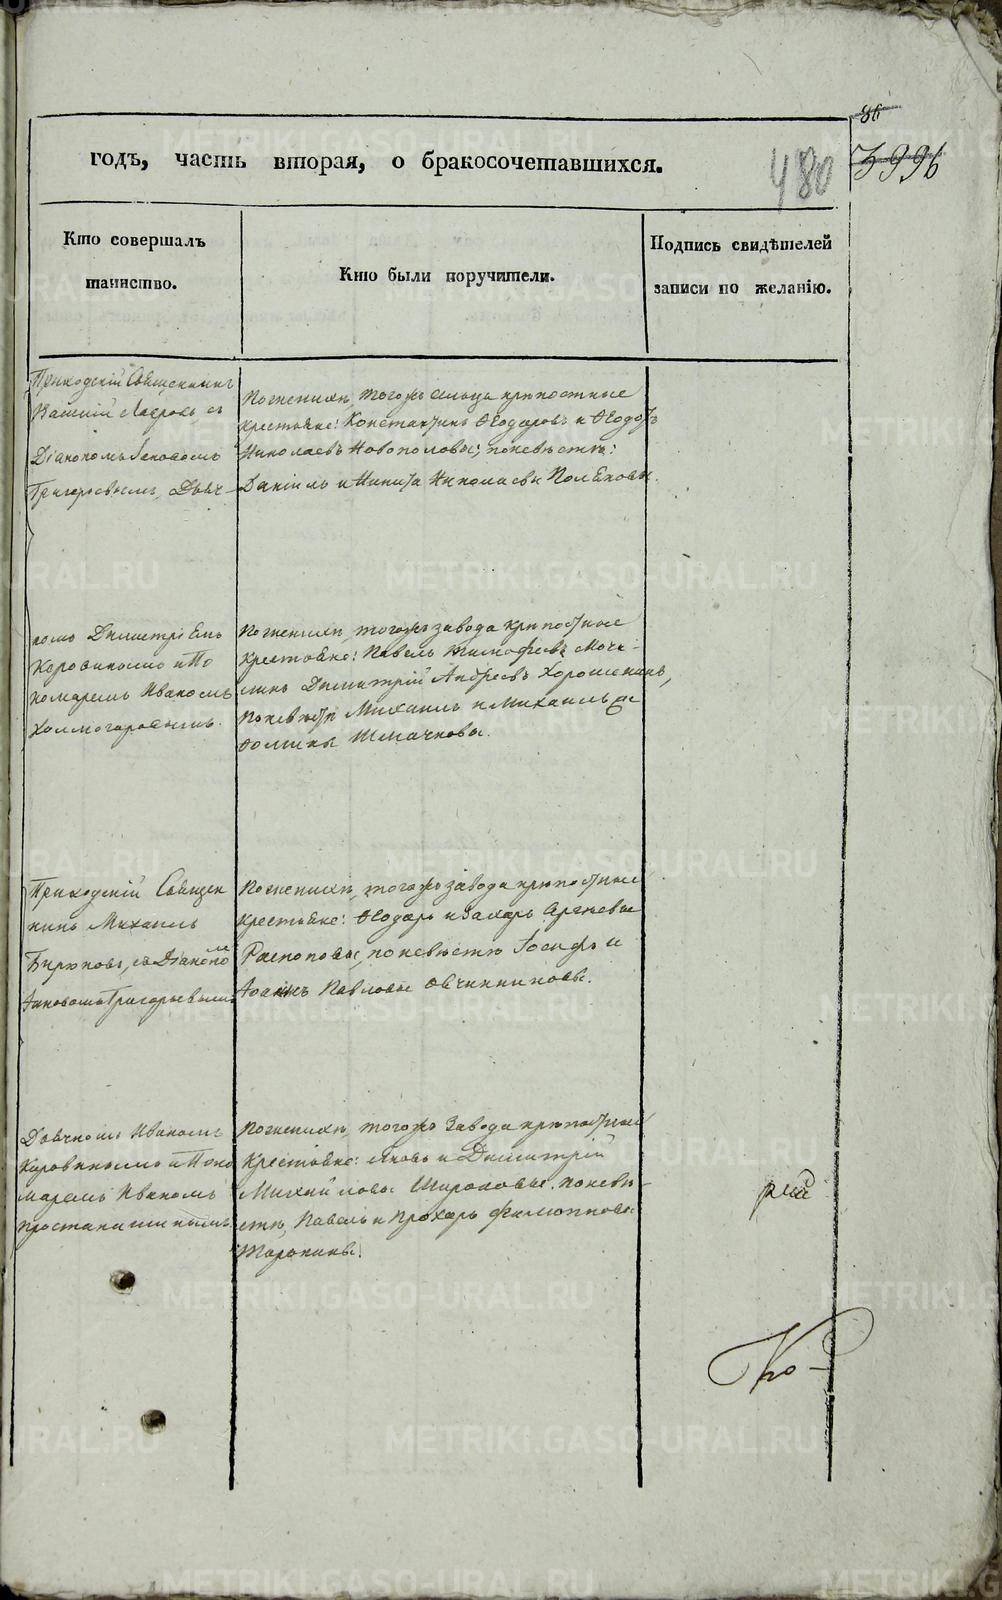 36
годъ, часть вторая, о бракосочетавшихся.
480
3996
Кто совершалъ
таинство.
Кто были поручители.
Подпись свидѣтелей
записи по желанію.
Приходскій Священникъ
Василій Лавровъ съ
Діакономъ Іаковомъ
Григорьевымъ, Дьяч-
По женихѣ, тогожъ сельца крѣпостные
крестьяне: Константинъ Ѳеодоровъ и Ѳеодотъ
Николаевъ Новопоповы; по невѣстѣ:
Даніилъ и Никита Николаевы Поляковы.
комъ Димитріемъ
Коровинымъ и По
номаремъ Иваномъ
Холмогоровымъ.
По женихѣ, тогожъ завода крѣпостные
крестьяне: Павелъ Тимофеевъ Моча-
линъ Димитрій Андреевъ Хорошенинъ,
по невѣстѣ Михаилъ и Михаилъ
Шмачковы.
Приходскій Священ
никъ Михаилъ
Бирюковъ, съ Діакономъ
Іаковомъ Григорьевымъ
По женихѣ, тогожъ завода крѣпостные
крестьяне: Ѳеодоръ и Захаръ Сергѣевы
Распоповы, по невѣстѣ Іосифъ и
Іоаннъ Павловы Овчинниковы.
Дьячкомъ Иваномъ
Коровинымъ и Поно
маремъ Иваномъ
По женихѣ, тогожъ завода крѣпостные
крестьяне: Яковъ и Димитрій
Михайловы Широковы. по невѣ-
стѣ, Павелъ и Прохоръ Филипповы
Торопины.
рей
Ко-
METRIKI.GASO-URAL.RU